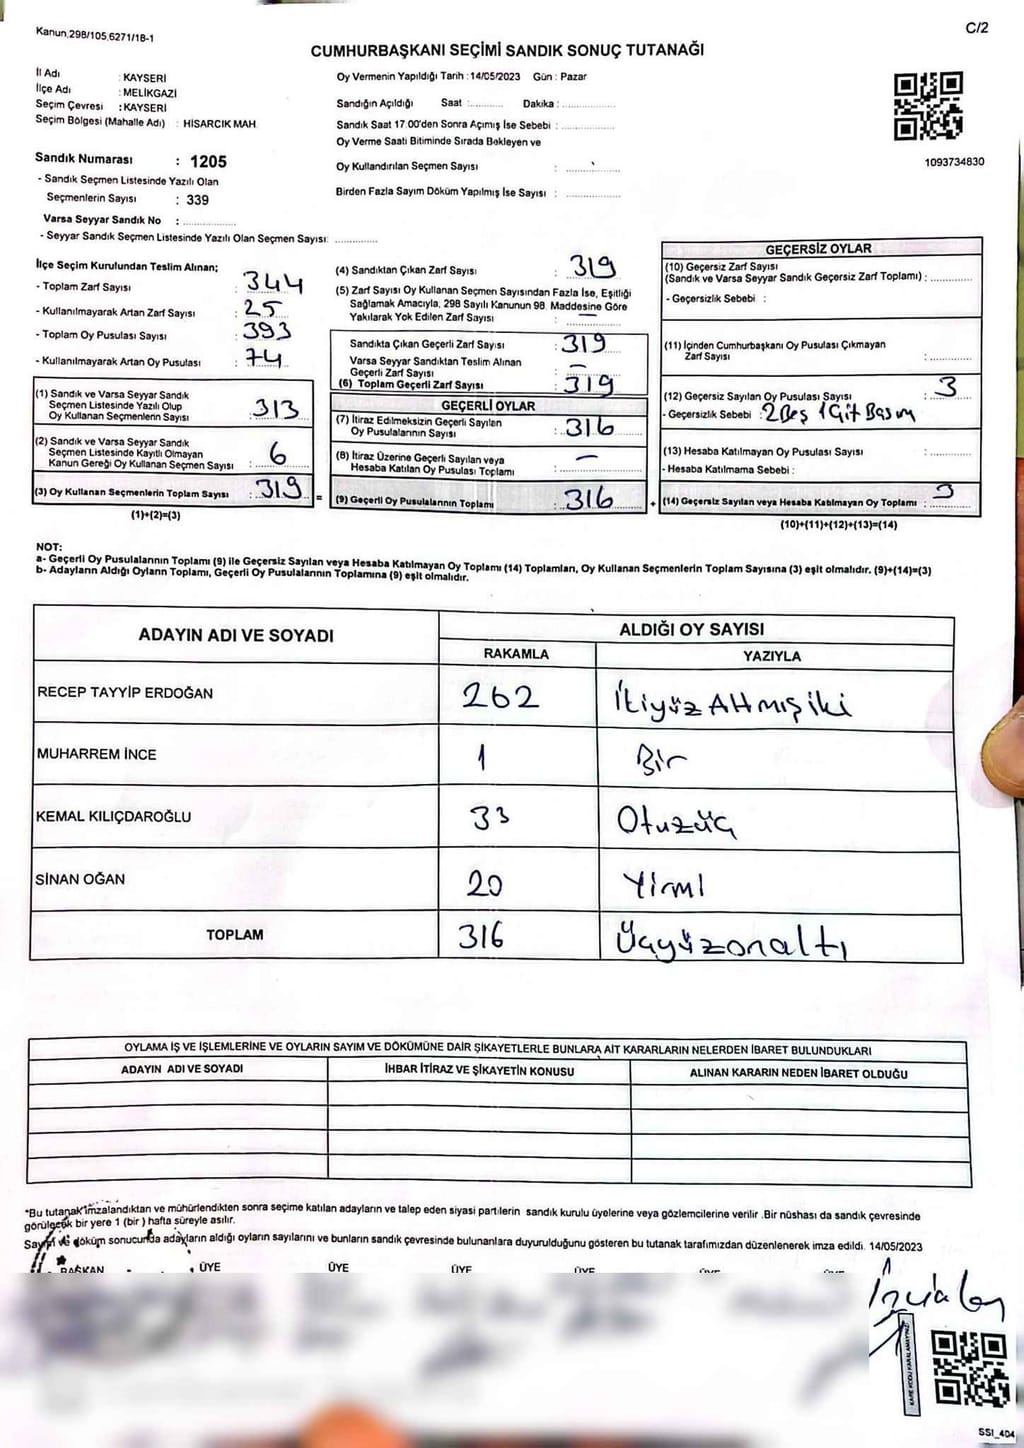 Kanun,298/105,6271/1B-1
C/2
CUMHURBAŞKANI SEÇİMİ SANDIK SONUÇ TUTANAĞI
İl Adı : KAYSERİ
İlçe Adı : MELİKGAZİ
Seçim Çevresi : KAYSERİ
Seçim Bölgesi (Mahalle Adı) : HİSARCIK MAH
Sandık Numarası : 1205
- Sandık Seçmen Listesinde Yazılı Olan
Seçmenlerin Sayısı : 339
Varsa Seyyar Sandık No : ..............
- Seyyar Sandık Seçmen Listesinde Yazılı Olan Seçmen Sayısı: ............
Oy Vermenin Yapıldığı Tarih :14/05/2023 Gün : Pazar
Sandığın Açıldığı Saat :.......... Dakika : ..............
Sandık Saat 17.00'den Sonra Açımış İse Sebebi : ..............
Oy Verme Saati Bitiminde Sırada Bekleyen ve
Oy Kullandırılan Seçmen Sayısı : ..............
Birden Fazla Sayım Döküm Yapılmış İse Sayısı : ..............
1093734830
İlçe Seçim Kurulundan Teslim Alınan;
- Toplam Zarf Sayısı : 344
- Kullanılmayarak Artan Zarf Sayısı : 25
- Toplam Oy Pusulası Sayısı : 393
- Kullanılmayarak Artan Oy Pusulası : 74
(1) Sandık ve Varsa Seyyar Sandık
Seçmen Listesinde Yazılı Olup
Oy Kullanan Seçmenlerin Sayısı : 313
(2) Sandık ve Varsa Seyyar Sandık
Seçmen Listesinde Kayıtlı Olmayan
Kanun Gereği Oy Kullanan Seçmen Sayısı : 6
(3) Oy Kullanan Seçmenlerin Toplam Sayısı : 319 =
(1)+(2)=(3)
(4) Sandıktan Çıkan Zarf Sayısı : 319
(5) Zarf Sayısı Oy Kullanan Seçmen Sayısından Fazla İse, Eşitliği
Sağlamak Amacıyla, 298 Sayılı Kanunun 98. Maddesine Göre
Yakılarak Yok Edilen Zarf Sayısı : —
Sandıkta Çıkan Geçerli Zarf Sayısı : 319
Varsa Seyyar Sandıktan Teslim Alınan
Geçerli Zarf Sayısı : —
(6) Toplam Geçerli Zarf Sayısı : 319
GEÇERLİ OYLAR
(7) İtiraz Edilmeksizin Geçerli Sayılan
Oy Pusulalarının Sayısı : 316
(8) İtiraz Üzerine Geçerli Sayılan veya
Hesaba Katılan Oy Pusulası Toplamı : —
(9) Geçerli Oy Pusulalarının Toplamı : 316 +
GEÇERSİZ OYLAR
(10) Geçersiz Zarf Sayısı
(Sandık ve Varsa Seyyar Sandık Geçersiz Zarf Toplamı) : ............
- Geçersizlik Sebebi :
(11) İçinden Cumhurbaşkanı Oy Pusulası Çıkmayan
Zarf Sayısı : ............
(12) Geçersiz Sayılan Oy Pusulası Sayısı : 3
- Geçersizlik Sebebi : 2 Beş 1 Çift Basım
(13) Hesaba Katılmayan Oy Pusulası Sayısı : ............
- Hesaba Katılmama Sebebi :
(14) Geçersiz Sayılan veya Hesaba Katılmayan Oy Toplamı : 3
(10)+(11)+(12)+(13)=(14)
NOT:
a- Geçerli Oy Pusulalarının Toplamı (9) ile Geçersiz Sayılan veya Hesaba Katılmayan Oy Toplamı (14) Toplamları, Oy Kullanan Seçmenlerin Toplam Sayısına (3) eşit olmalıdır. (9)+(14)=(3)
b- Adayların Aldığı Oyların Toplamı, Geçerli Oy Pusulalarının Toplamına (9) eşit olmalıdır.
ADAYIN ADI VE SOYADI
ALDIĞI OY SAYISI
RAKAMLA YAZIYLA
RECEP TAYYİP ERDOĞAN 262 İkiyüz Altmış iki
MUHARREM İNCE 1 Bir
KEMAL KILIÇDAROĞLU 33 Otuzüç
SİNAN OĞAN 20 Yirmi
TOPLAM 316 Üçyüzonaltı
OYLAMA İŞ VE İŞLEMLERİNE VE OYLARIN SAYIM VE DÖKÜMÜNE DAİR ŞİKAYETLERLE BUNLARA AİT KARARLARIN NELERDEN İBARET BULUNDUKLARI
ADAYIN ADI VE SOYADI İHBAR İTİRAZ VE ŞİKAYETİN KONUSU ALINAN KARARIN NEDEN İBARET OLDUĞU
*Bu tutanak imzalandıktan ve mühürlendikten sonra seçime katılan adayların ve talep eden siyasi partilerin sandık kurulu üyelerine veya gözlemcilerine verilir .Bir nüshası da sandık çevresinde
görülecek bir yere 1 (bir ) hafta süreyle asılır.
Sayım ve döküm sonucunda adayların aldığı oyların sayılarını ve bunların sandık çevresinde bulunanlara duyurulduğunu gösteren bu tutanak tarafımızdan düzenlenerek imza edildi. 14/05/2023
BAŞKAN ÜYE ÜYE ÜYE ÜYE
KARE KODU KARALAMAYINIZ!
SSI_404